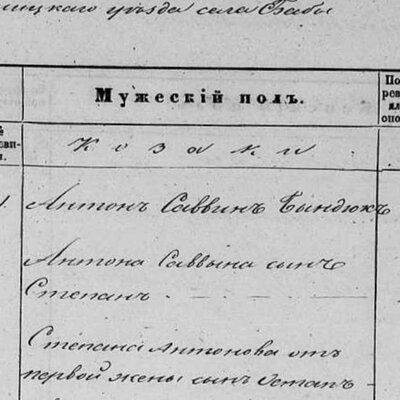 ницкаго уѣзда села Бабы
Мужескій полъ.
По
рев
ял
опо
ѣ
ови-
и.
Козаки
1. Антонъ Саввинъ Бындюкъ
Антона Саввына сынъ
Степанъ
Степана Антонова отъ
первой жены сынъ Остапъ -